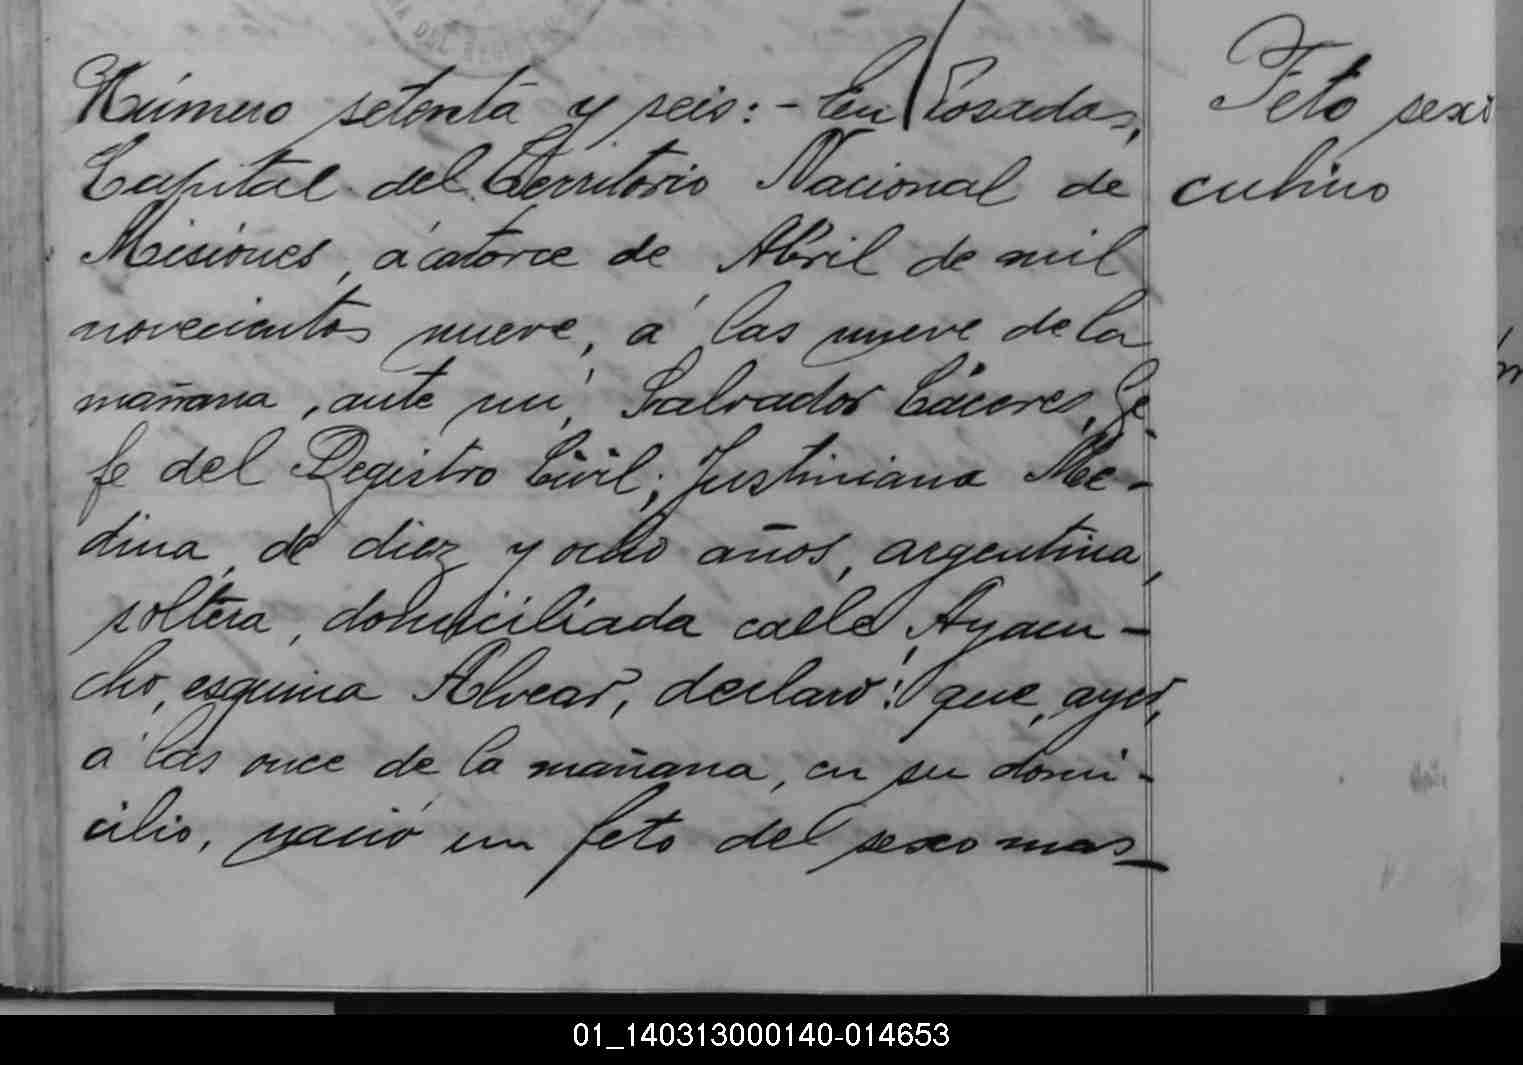 Número setenta y seis: - En Posadas,
Capital del Territorio Nacional de
Misiones, á catorce de Abril de mil
novecientos nueve, á las nueve de la
mañana, ante mí, Salvador Cáceres, Ge-
fe del Registro Civil; Justiniana Me-
dina, de diez y ocho años, argentina,
soltera, domiciliada calle Ayacu-
cho, esquina Alvear, declaró: que, ayer,
á las once de la mañana, en su domi-
cilio, nació un feto del sexo mas-
Feto sexo
culino
01_140313000140-014653